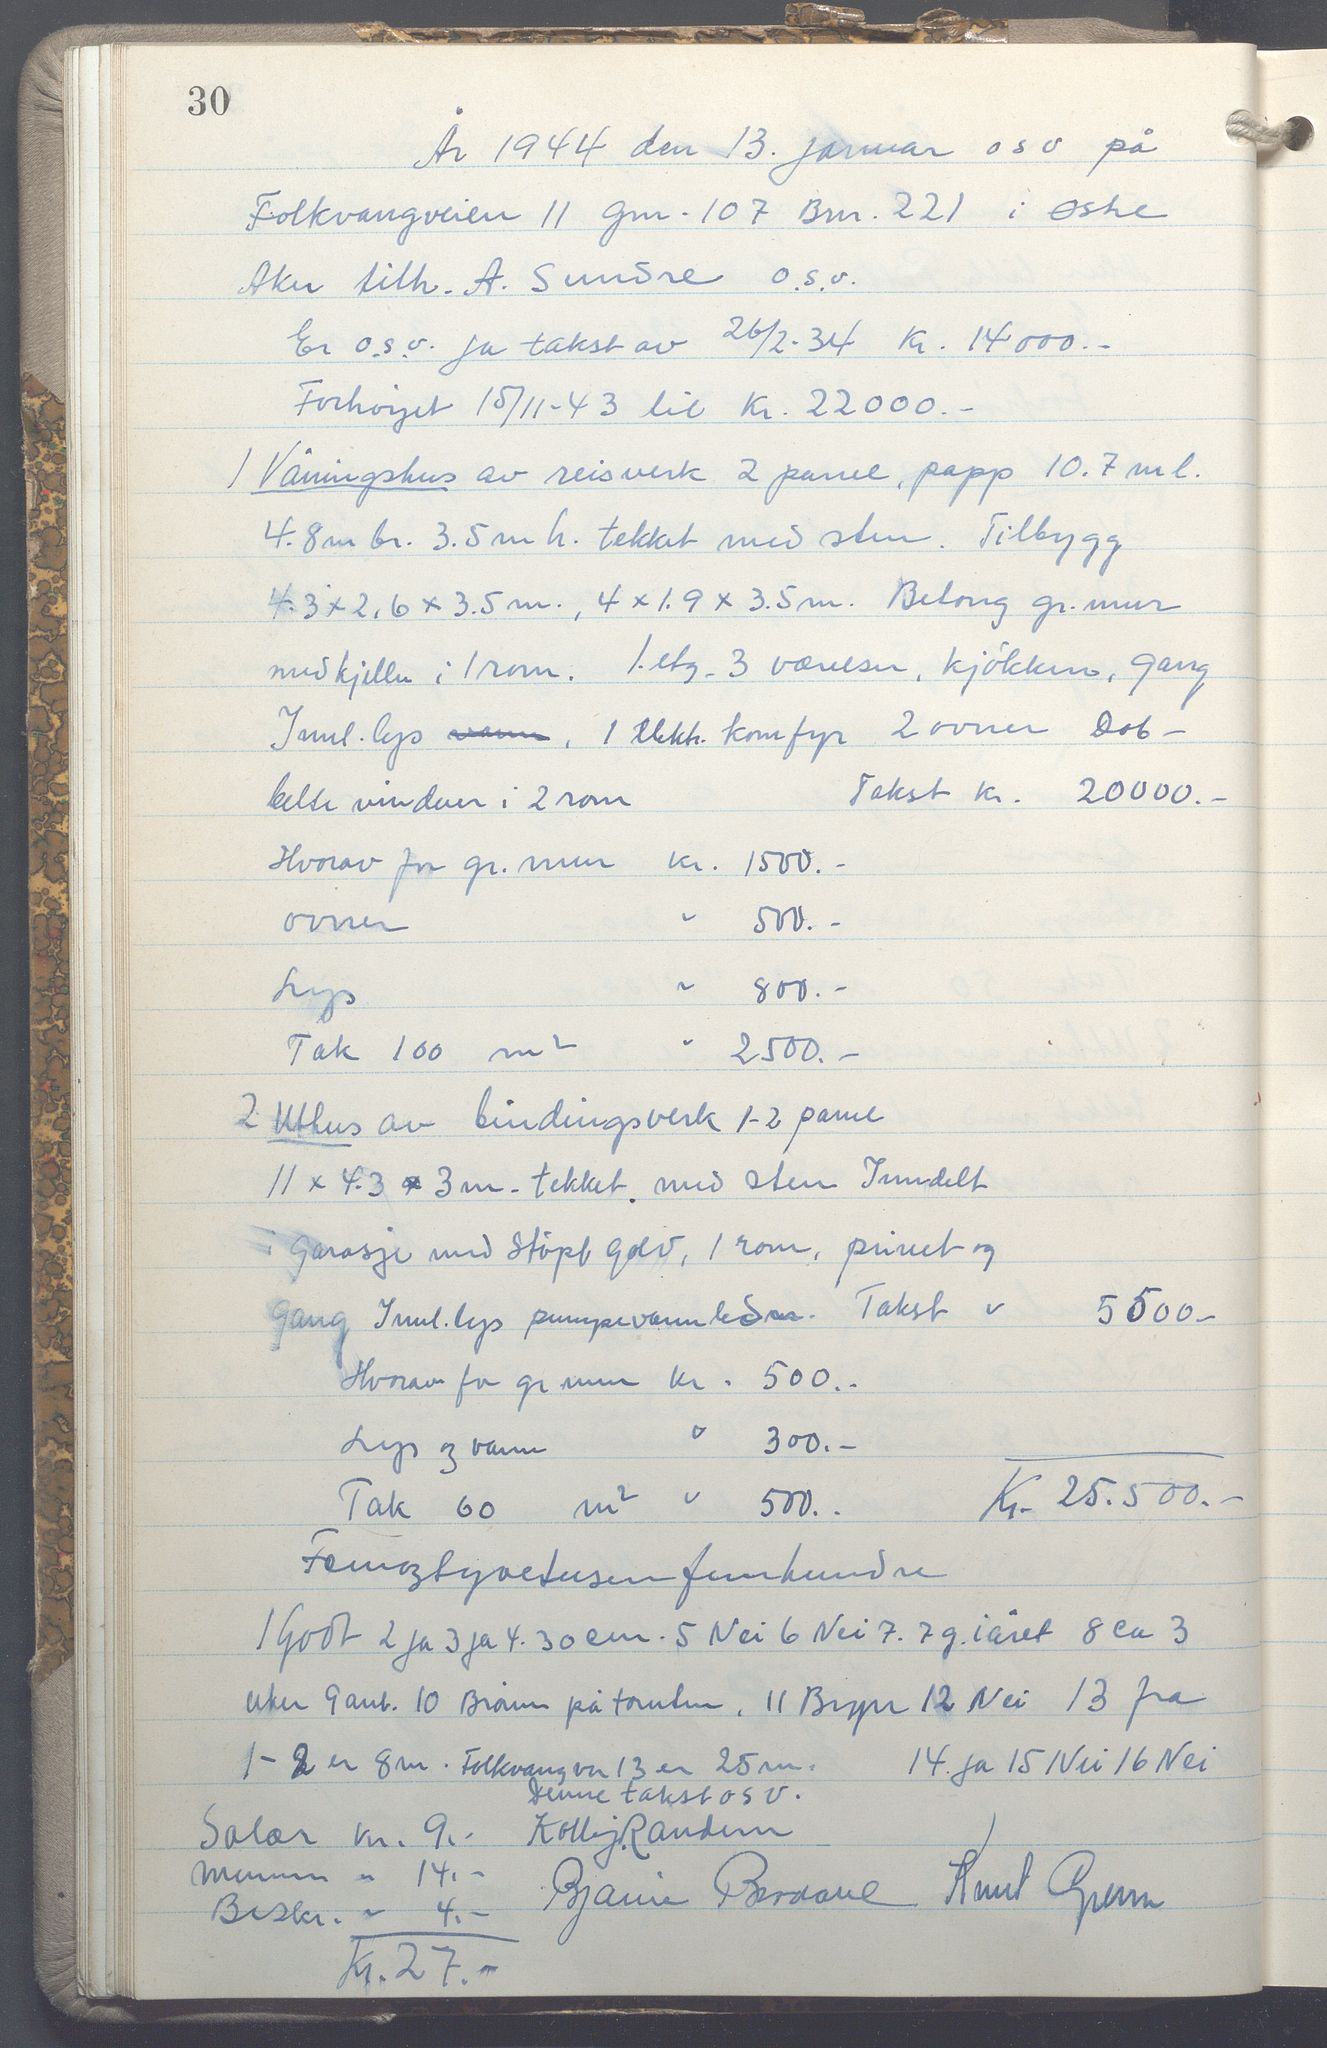 30
År 1944 den 13. januar o s v på
Folkvangveien 11 gnr. 107 Bnr. 221 i østre
Aker tilh. A. Sundre o.s.v.
Er o.s.v. ja takst av 26/2-34 Kr. 14000.-
Forhöyet 15/11-43 til Kr. 22000.-
1 Våningshus av reisverk 2 panel, papp 10.7 m l.
4.8 m br. 3.5 m h. tekket med sten. Tilbygg
4.3 x 2,6 x 3.5 m., 4 x 1.9 x 3.5 m. Betong gr. mur
med kjeller i 1 rom. 1. etg. 3 værelser, kjökken, gang
Innl. lys vann, 1 elektr. komfyr 2 ovner Dob-
belte vinduer i 2 rom Takst kr. 20000.-
Hvorav for gr. mur kr. 1500.-
ovner " 500.-
Lys " 800.-
Tak 100 m² " 2500.-
2 Uthus av bindingsverk 1-2 panel
11 x 4.3 x 3 m. tekket med sten Inndelt
i garasje med Stöpt golv, 1 rom, privet og
gang Innl. lys pumpevannledn. Takst " 5500-
Hvorav for gr mur kr. 500.-
Lys og vann " 300.-
Tak 60 m² " 500.- Kr. 25.500.-
Femogtyvetusenfemhundre
1 Godt 2 ja 3 ja 4. 30 cm. 5 Nei 6 Nei 7. 7 g. i året 8 ca 3
uker 9 ant. 10 Brönn på tomten, 11 Bryn 12 Nei 13 fra
1-2 er 8 m. Folkvangvn 13 er 25 m. 14. ja 15 Nei 16 Nei
Denne takst o s v.
Salær kr. 9.- Kolbj. Randem
" 14.- Bjarne Knut
Beskr. " 4.-
Kr. 27.-